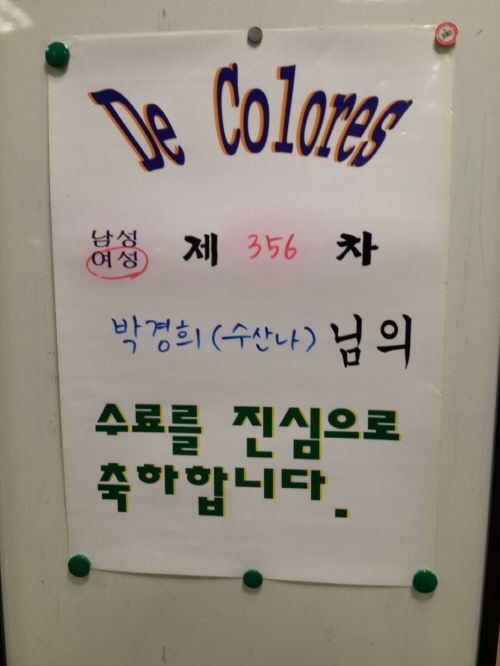 De Colores
남성
여성
제 356 차
박경희(수산나) 님의
수료를 진심으로
축하합니다.